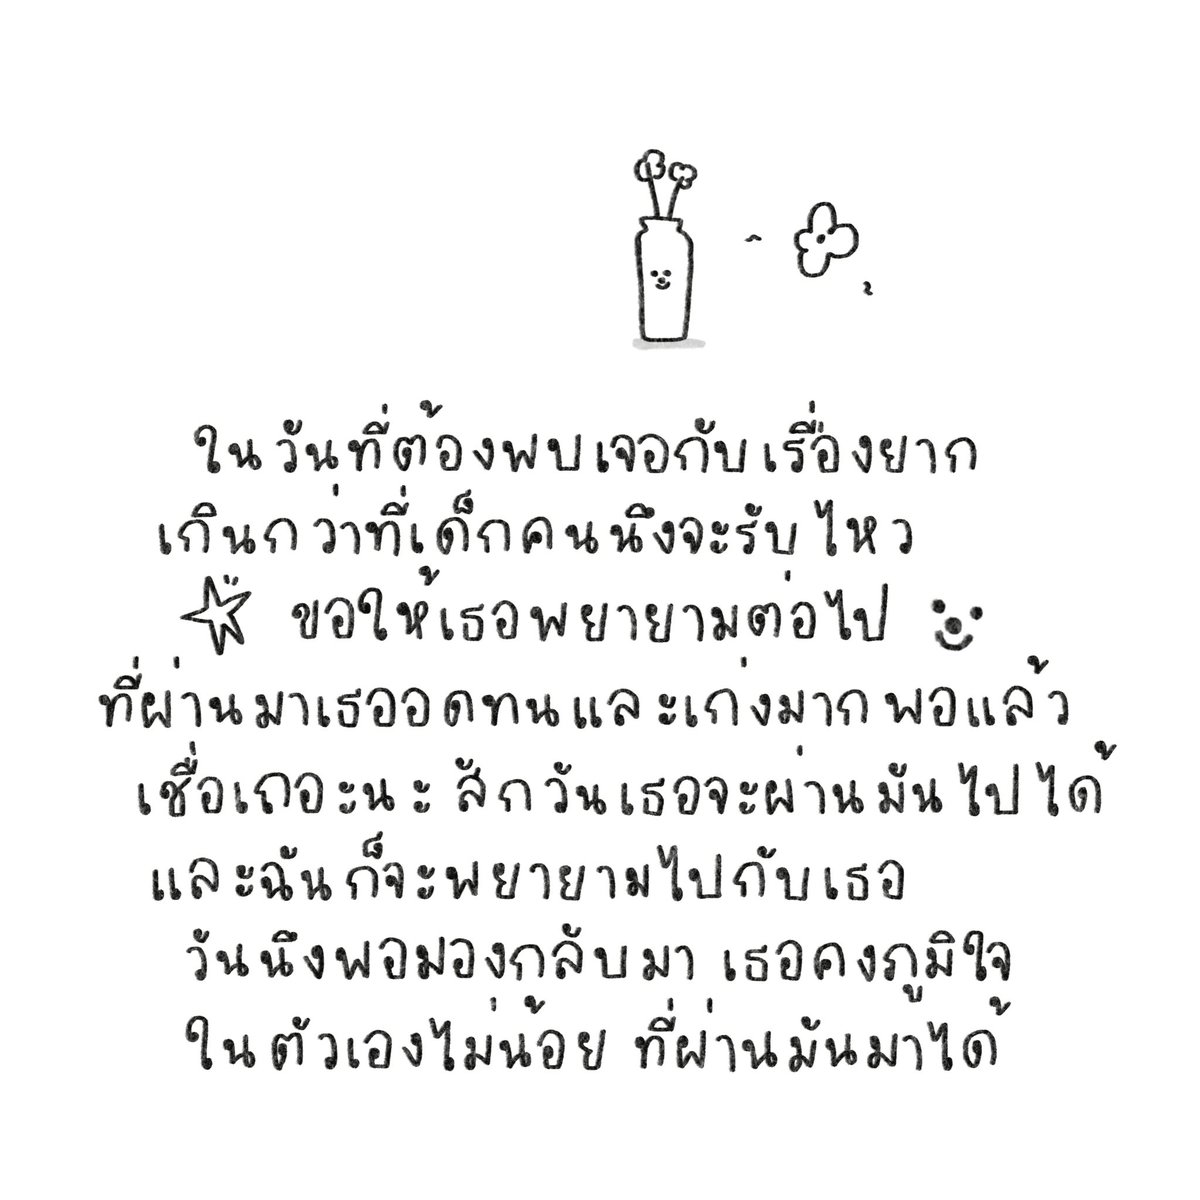 ในวันที่ต้องพบเจอกับเรื่องยาก
เกินกว่าที่เด็กคนนึงจะรับไหว
ขอให้เธอพยายามต่อไป
ที่ผ่านมาเธออดทนและเก่งมากพอแล้ว
เชื่อเถอะนะ สักวันเธอจะผ่านมันไปได้
และฉันก็จะพยายามไปกับเธอ
วันนึงพอมองกลับมา เธอคงภูมิใจ
ในตัวเองไม่น้อย ที่ผ่านมันมาได้